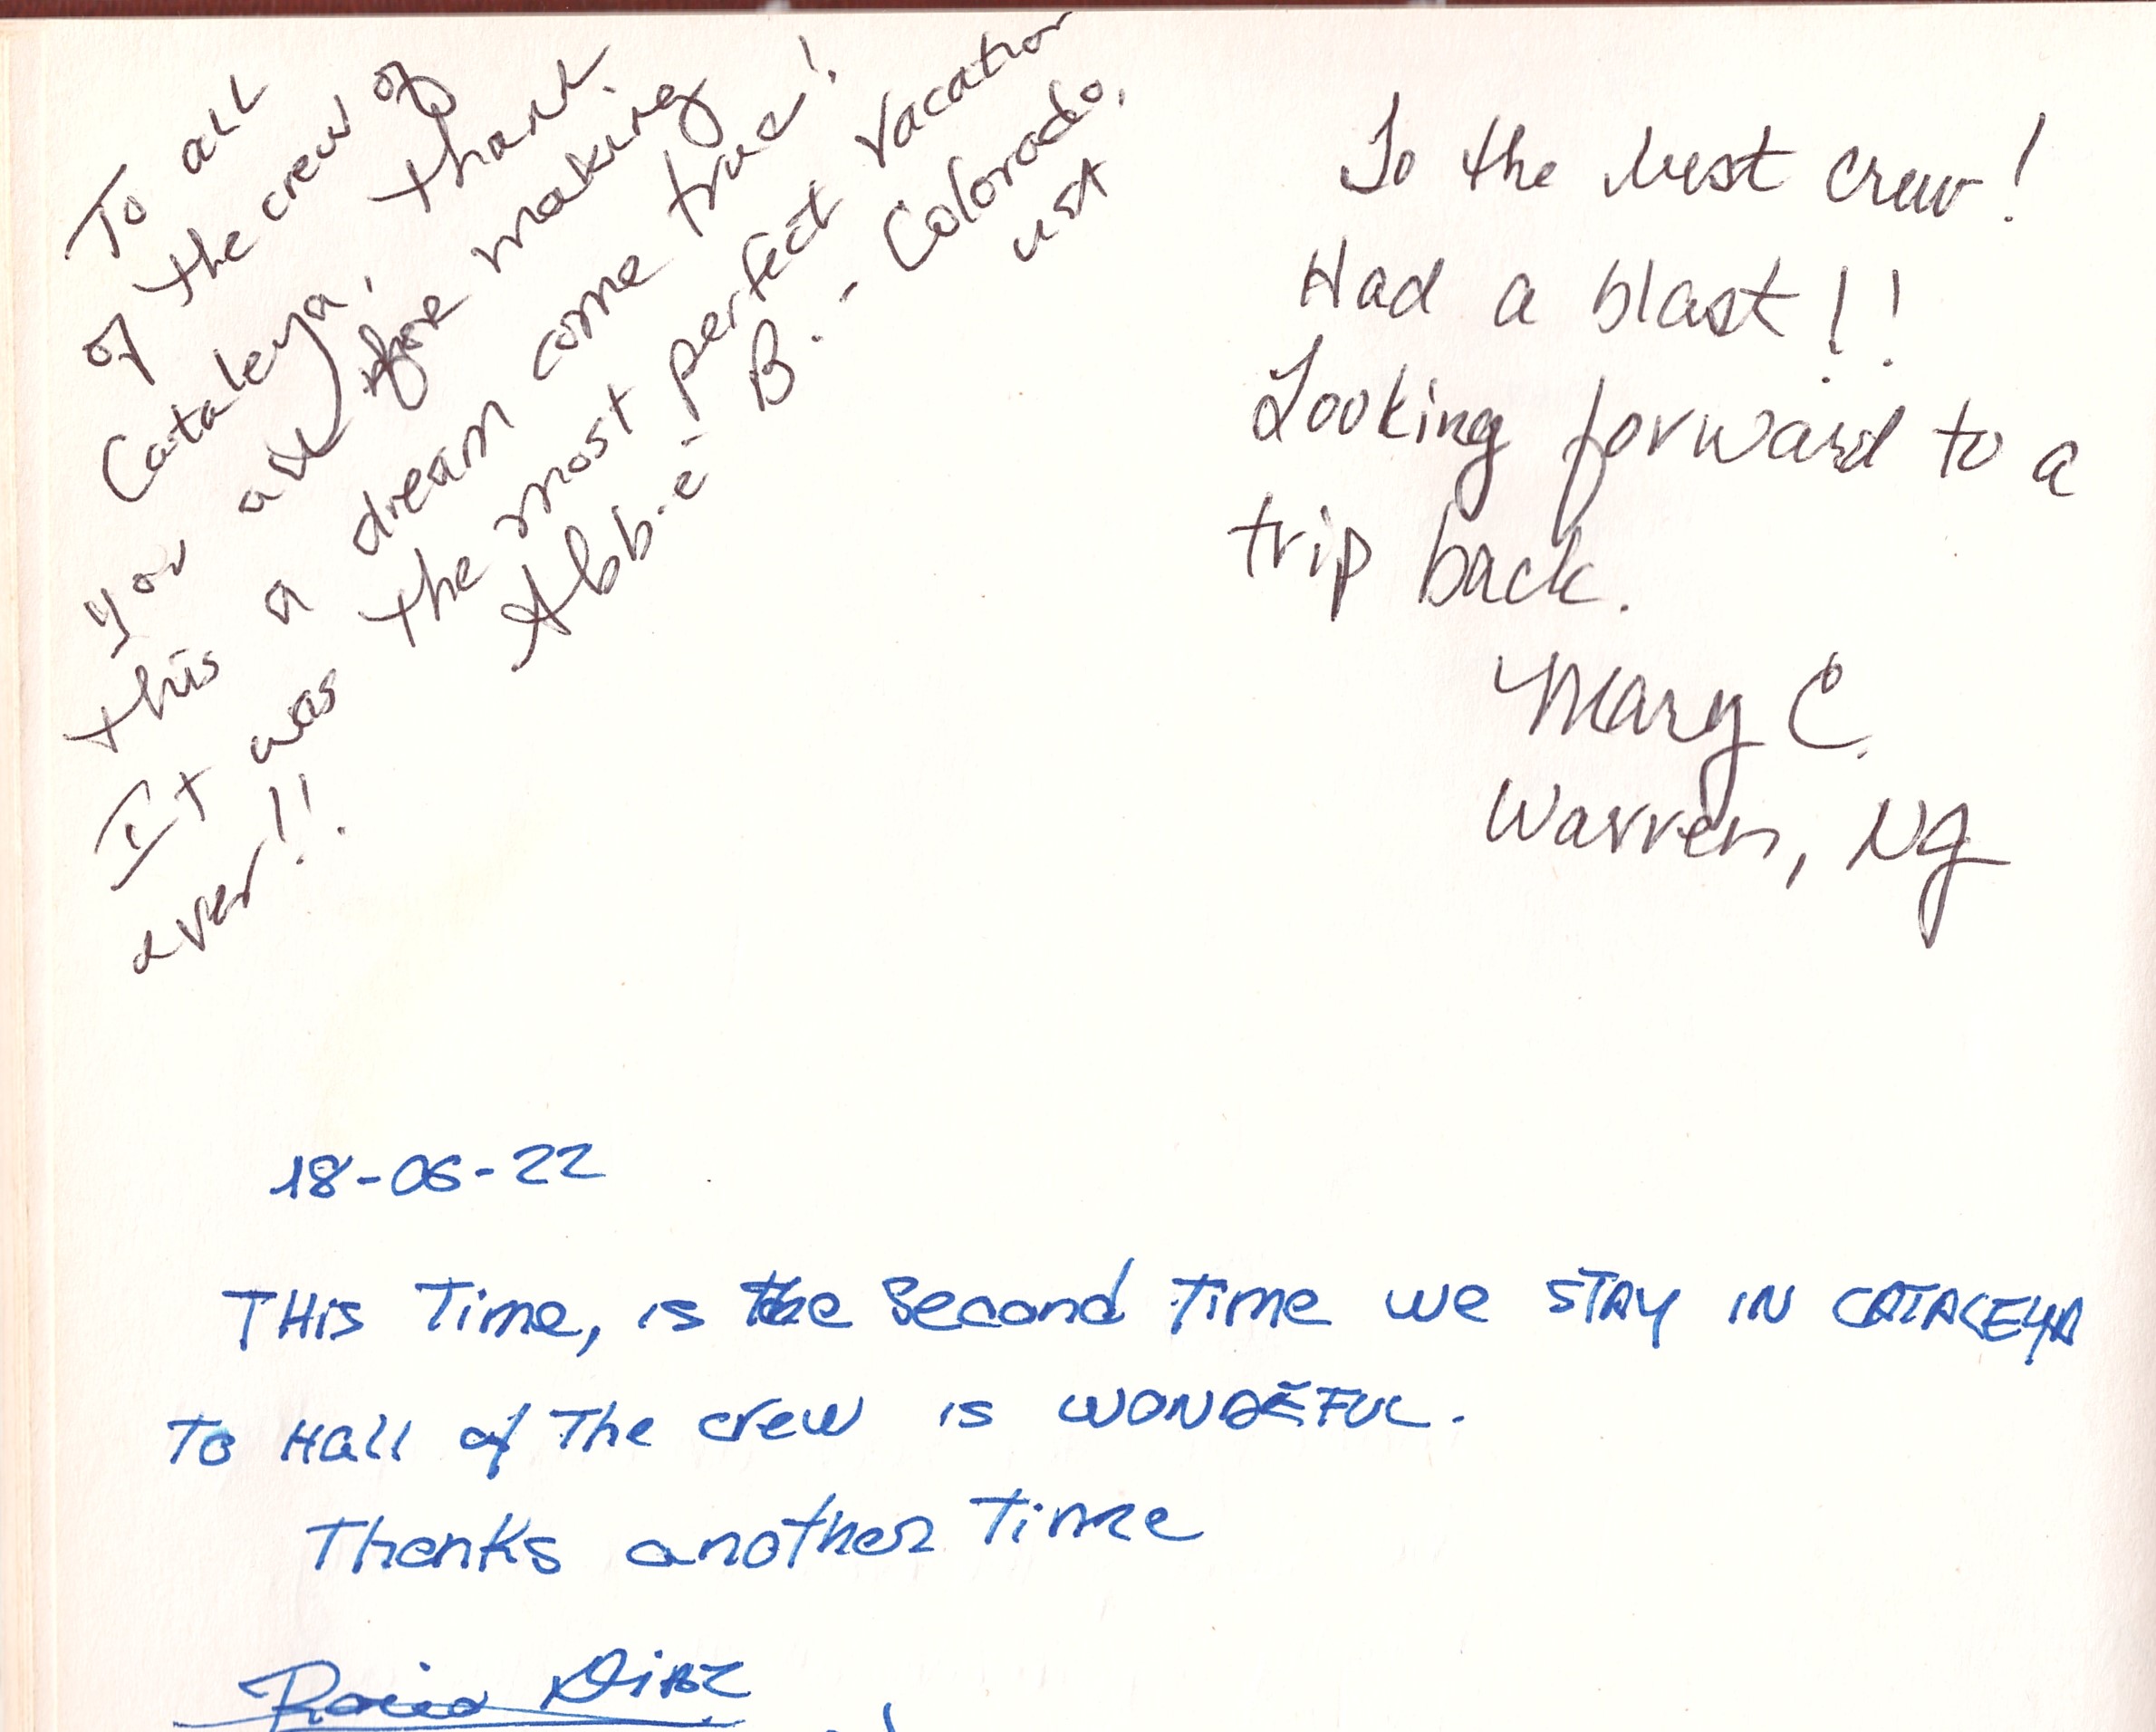 To all
of the crew of
Cataleya, thank
you all for making
this a dream come true!
It was the most perfect vacation
ever!!
Abb-e- B. - Colorado,
USA
To the best crew!
Had a blast!!
Looking forward to a
trip back.
Mary C.
Warren, NJ
18-06-22
THIS Time, is the Second Time we STAY IN CATALEYA
To Hall of The crew is WONDEFUL.
Thanks another Time
Rocio DIAZ